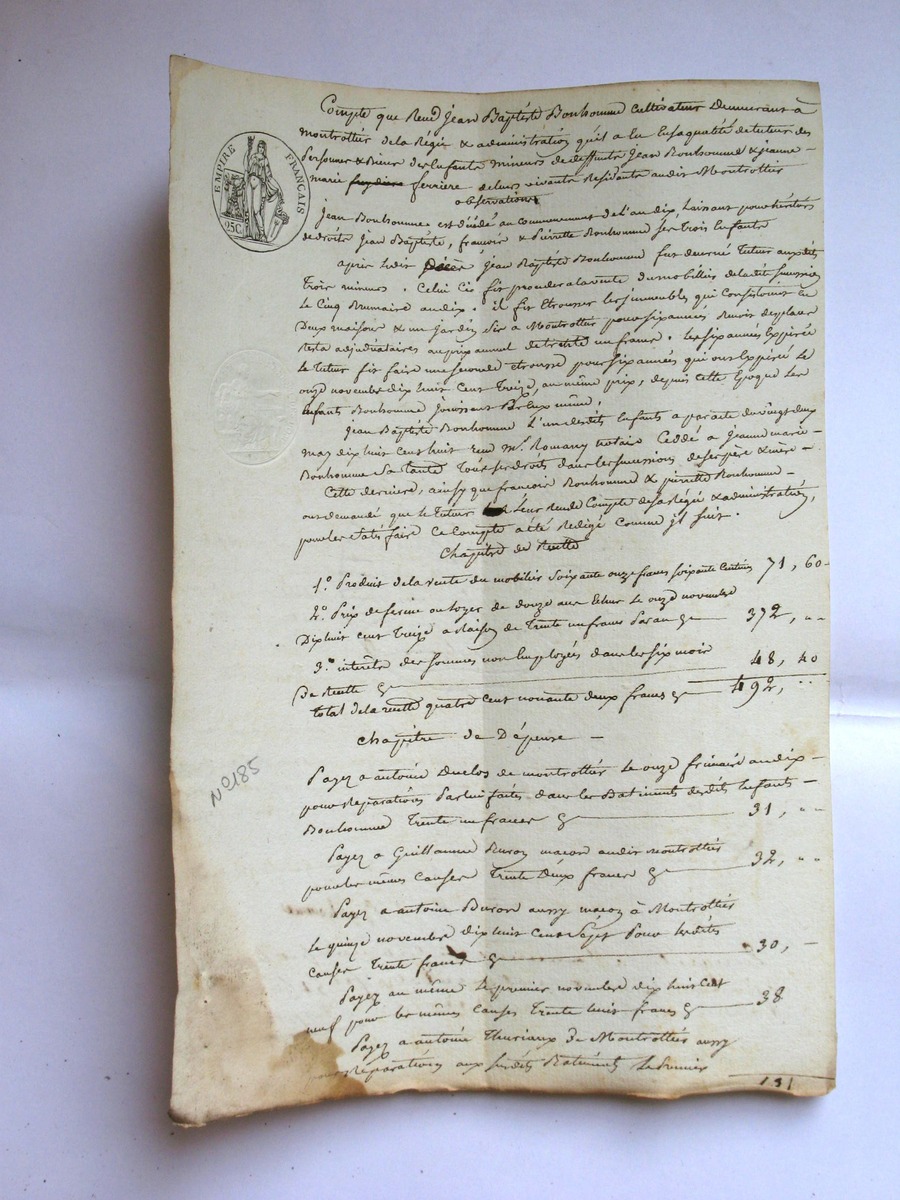 EMPIRE FRANÇAIS
25C.
Compte que Rend jean Baptiste Bonhomme Cultivateur Demeurant à
Montrottier de la Régie & administration qu'il a Eu En sa qualité de tuteur des
Personnes & Biens des Enfants mineurs de deffunts Jean Bonhomme & jeanne
marie ferriere de leurs vivants Residants audit Montrottier
observations
Jean Bonhomme est décédé au Commencement de l'an dix, laissant pour héritiers
de droits Jean Baptiste, francois & Pierrette Bonhomme ses trois Enfants
après ledit Décès jean Baptiste Bonhomme fut decerné Tuteur auxdits
Trois mineurs. Celui Ci fit proceder a la vente du mobilier de ladite succession
le Cinq Brumaire an dix. il fit Etrousser les immeubles qui Consistoient En
Deux maisons & un jardin sis a Montrottier pour six années
resta adjudicataires au prix annuel de trente un francs. les six années Expirées
Le tuteur fit faire une seconde etrousse pour six années qui ont Expiré le
onze novembre dix huit Cent Treize, au même prix, depuis Cette Epoque les
Enfants Bonhomme jouissent Par Eux même.
Jean Baptiste Bonhomme L'un desdits Enfants a par acte du vingt deux
may dix huit cent huit reçu Mr. Romany notaire Ceddé a jeanne marie
Bonhomme Sa tante Tous ses droits dans les successions de ses père & mère
Cette derniere, ainsy que francois Bonhomme & pierrette Bonhomme
ont demandé que le Tuteur Leur rende Compte de sa Régie & administration,
pour les satisfaire Ce Compte a été Redigé Comme il suit.
Chapitre de Recette
1.° Produit de la vente du mobilier Soixante onze francs soixante Centimes 71, 60
2.° Prix de ferme ou Loyer de douze ans Echus le onze novembre
Dix huit cent Treize a Raison de Trente un francs Par an 372, "
3.° interêts des sommes non Employées dans les six mois
De Recette 48, 40
Total de la recette quatre cent nonante deux francs 492, "
Chapitre de Dépense
Payez a antoine Duclos de montrottier le onze frimaire an dix
pour Reparations Par lui faites dans les Batiments desdits Enfants
Bonhomme Trente un francs 31, "
Payez a Guillaume Buron maçon audit Montrottier
pour les mêmes Causes Trente Deux francs 32, "
Payez a antoine Buron aussy maçon à Montrottier
le quinze novembre dix huit Cent Sept Pour lesdites
Causes Trente francs 30,
Payez au même le premier novembre dix huit Cent
neuf pour les mêmes Causes Trente huit francs 38
Payez a antoine Thuriaux de Montrottier aussy
pour Réparations aux susdits Batiments Le premier
131
N°185